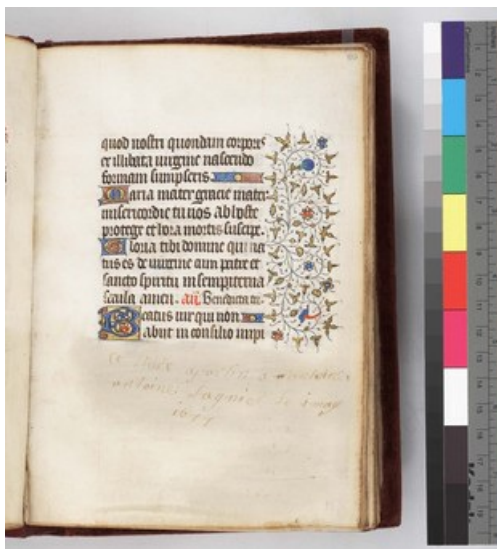 quod nostri quondam corporis
et illibata virgine nascendo
formam sumpseris
Maria mater gracie mater
misericordie tu nos ab hoste
protege et hora mortis suscipe.
Gloria tibi domine qui na
tus es de virgine cum patre et
sancto spiritu in sempiterna
secula amen. añ Benedicta tu.
Beatus vir qui non
abiit in consilio impi
Ce livre apartin a
antoine
1677